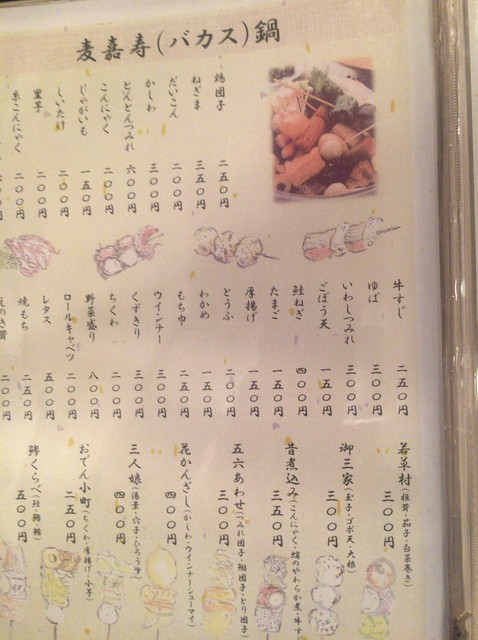 麦嘉寿(バカス)鍋
鶏団子 二五〇円
ねぎま 三五〇円
だいこん 二〇〇円
かしわ 三〇〇円
とんとんつみれ 六〇〇円
こんにゃく 二〇〇円
じゃがいも 一五〇円
しいたけ 二〇〇円
里芋 二〇〇円
糸こんにゃく 二〇〇円
牛すじ 二五〇円
ゆば 三〇〇円
いわしつみれ 三〇〇円
ごぼう天 一五〇円
鮭ねぎ 四〇〇円
たまご 一五〇円
厚揚げ 一五〇円
とうふ 二〇〇円
わかめ 一五〇円
もち巾 二五〇円
ウインナー 三〇〇円
くずきり 三〇〇円
ちくわ 二〇〇円
野菜盛り 八〇〇円
ロールキャベツ 二〇〇円
レタス 五〇円
焼もち 二五〇円
二〇〇円
若草村(椎茸・茄子・白菜巻き) 三〇〇円
御三家(玉子・ゴボ天・大根) 三〇〇円
昔煮込み(こんにゃく・蛸のやわらか煮・牛すじ 三五〇円
五六あわせ(つみれ団子・鶏団子・とり団子) 三〇〇円
花かんざし(かしわ・ウインナーシューマイ) 四〇〇円
三人娘(湯葉・穴子・ひろうす) 四〇〇円
おでん小町(ちくわ・厚揚げ・小芋) 二五〇円
鰺くらべ 五〇〇円